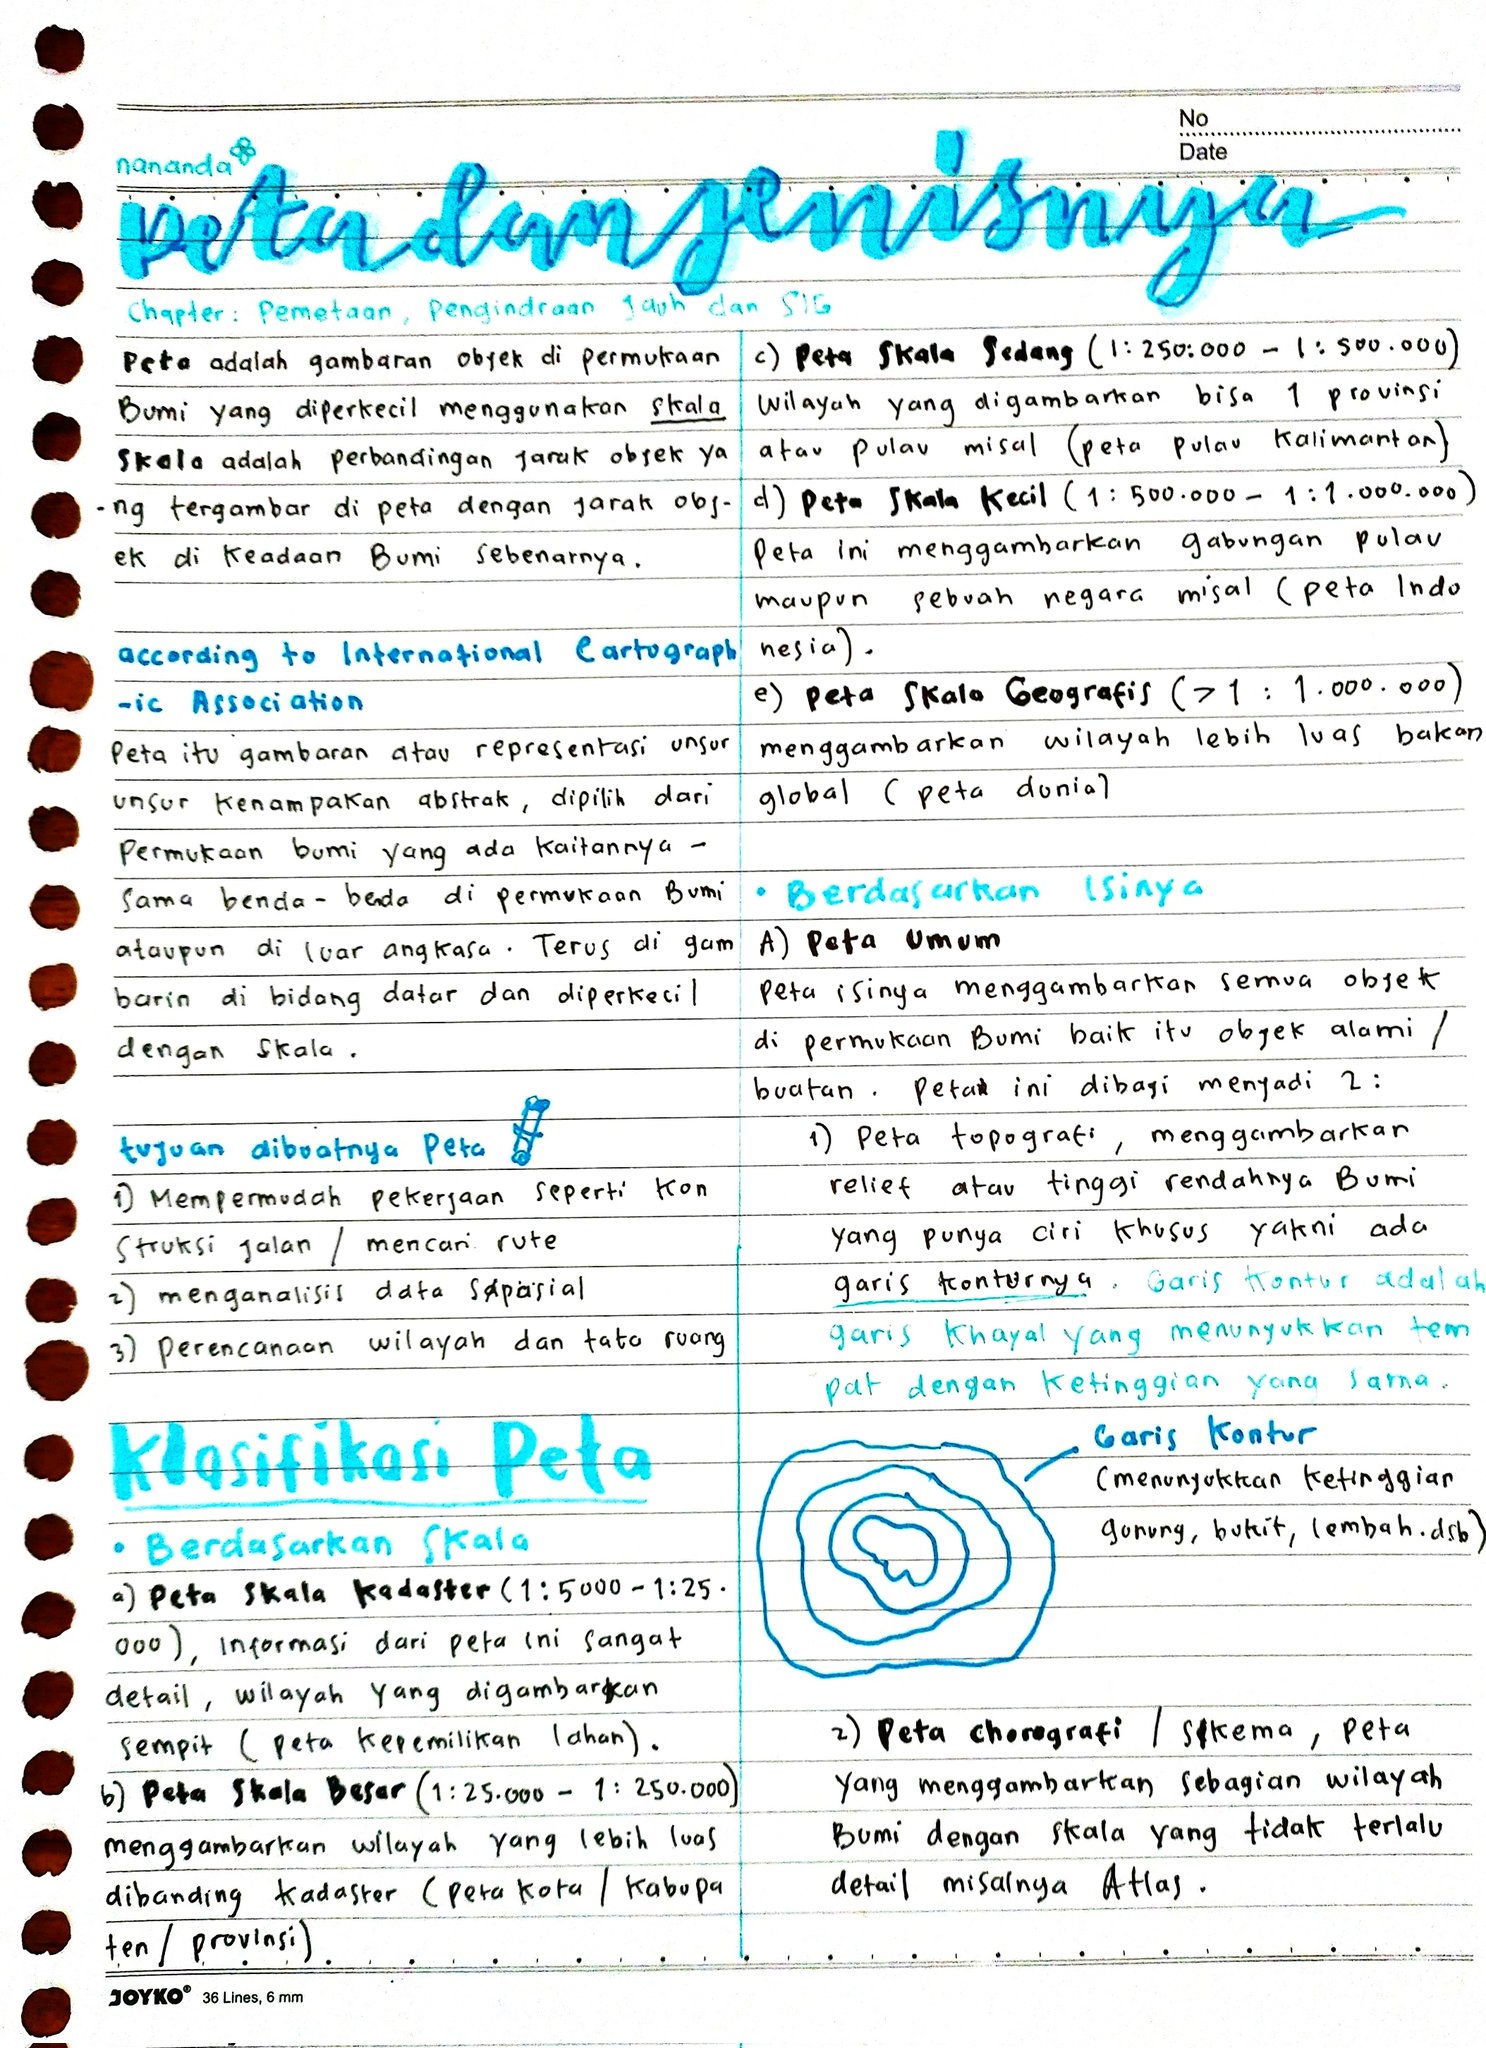 No
Date
nananda
peta dan jenisnya
Chapter: Pemetaan, Pengindraan Jauh dan SIG
Peta adalah gambaran objek di permukaan
Bumi yang diperkecil menggunakan skala
Skala adalah perbandingan jarak objek ya
-ng tergambar di peta dengan jarak obj-
ek di keadaan Bumi sebenarnya.
according to International Cartograph
-ic Association
Peta itu gambaran atau representasi unsur
unsur kenampakan abstrak, dipilih dari
permukaan bumi yang ada kaitannya -
sama benda-benda di permukaan Bumi
ataupun di luar angkasa. Terus di gam
barin di bidang datar dan diperkecil
dengan skala.
tujuan dibuatnya Peta
1) Mempermudah pekerjaan seperti kon
struksi jalan / mencari rute
2) menganalisis data spasial
3) perencanaan wilayah dan tata ruang
Klasifikasi Peta
• Berdasarkan Skala
a) Peta Skala Kadaster (1:5000 - 1:25.
000), informasi dari peta ini sangat
detail, wilayah yang digambarkan
sempit (peta kepemilikan lahan).
b) Peta Skala Besar (1:25.000 - 1: 250.000)
menggambarkan wilayah yang lebih luas
dibanding kadaster (peta kota / kabupa
ten / provinsi)
c) Peta Skala Sedang (1: 250.000 - 1: 500.000)
wilayah yang digambarkan bisa 1 provinsi
atau pulau misal (peta pulau kalimantan)
d) Peta Skala Kecil (1: 500.000 - 1:1.000.000)
Peta ini menggambarkan gabungan pulau
maupun sebuah negara misal (peta Indo
nesia).
e) Peta Skala Geografis (>1 : 1.000.000)
menggambarkan wilayah lebih luas bakan
global (peta dunia)
• Berdasarkan Isinya
A) Peta Umum
Peta isinya menggambarkan semua objek
di permukaan Bumi baik itu objek alami /
buatan. Peta ini dibagi menjadi 2:
1) Peta topografi, menggambarkan
relief atau tinggi rendahnya Bumi
yang punya ciri khusus yakni ada
garis konturnya. Garis kontur adalah
garis khayal yang menunjukkan tem
pat dengan ketinggian yang sama.
Garis Kontur
(menunjukkan ketinggian
gunung, bukit, lembah.dsb)
2) Peta chorografi / skema, Peta
yang menggambarkan sebagian wilayah
Bumi dengan skala yang tidak terlalu
detail misalnya Atlas.
JOYKO® 36 Lines, 6 mm